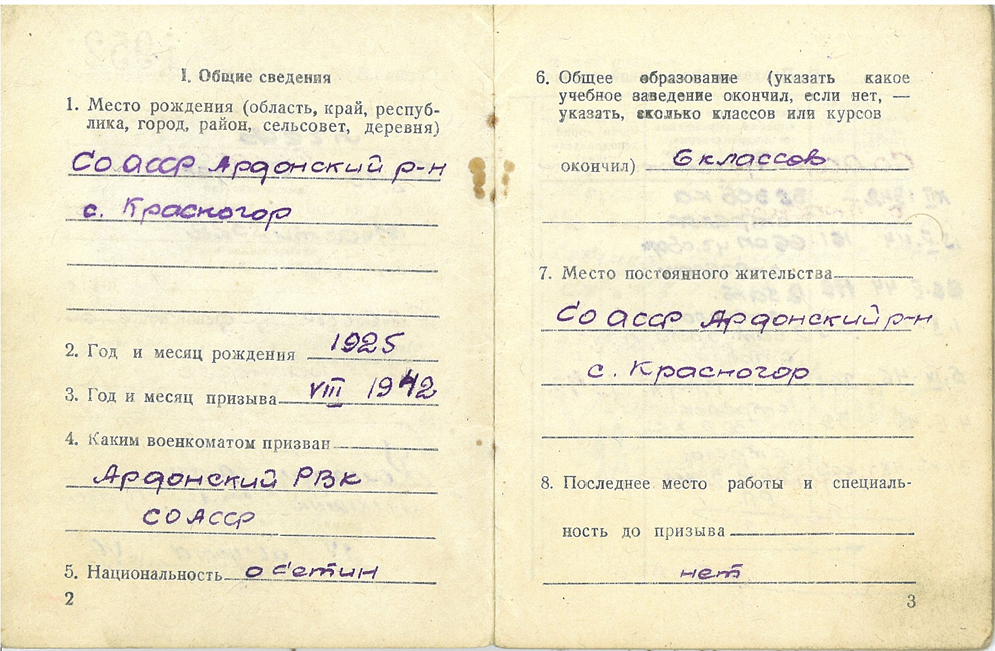 I. Общие сведения
1. Место рождения (область, край, респуб-
лика, город, район, сельсовет, деревня)
СО АССР Ардонский р-н
с. Красногор
2. Год и месяц рождения 1925
3. Год и месяц призыва VIII 1942
4. Каким военкоматом призван
Ардонский РВК
СО АССР
5. Национальность осетин
2
6. Общее образование (указать какое
учебное заведение окончил, если нет, —
указать, сколько классов или курсов
окончил) 6 классов
7. Место постоянного жительства
СО АССР Ардонский р-н
с. Красногор
8. Последнее место работы и специаль-
ность до призыва
нет
3